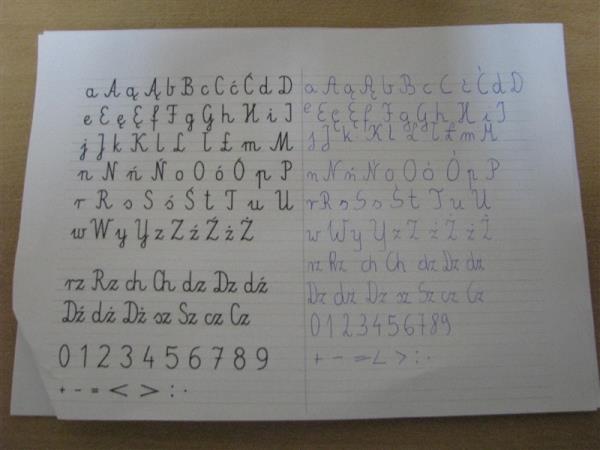 a A ą Ą b B c C ć Ć d D
e E ę Ę f F g G h H i I
j J k K l L ł Ł m M
n N ń Ń o O ó Ó p P
r R s S ś Ś t T u U
w W y Y z Z ź Ź ż Ż
rz Rz ch Ch dz Dz dź
Dź dż Dż sz Sz cz Cz
0 1 2 3 4 5 6 7 8 9
+ - = < > : ·
a A ą Ą b B c C ć Ć d D
e E ę Ę f F g G h H i I
j J k K l L ł Ł m M
n N ń N o O ó Ó p P
r R s S s Ś t T u U
w W y Y z Z ź Ź ż Ż
rz Rz ch Ch dz Dz dź
Dz dż Dz sz Sz cz Cz
0 1 2 3 4 5 6 7 8 9
+ - = < > : ·